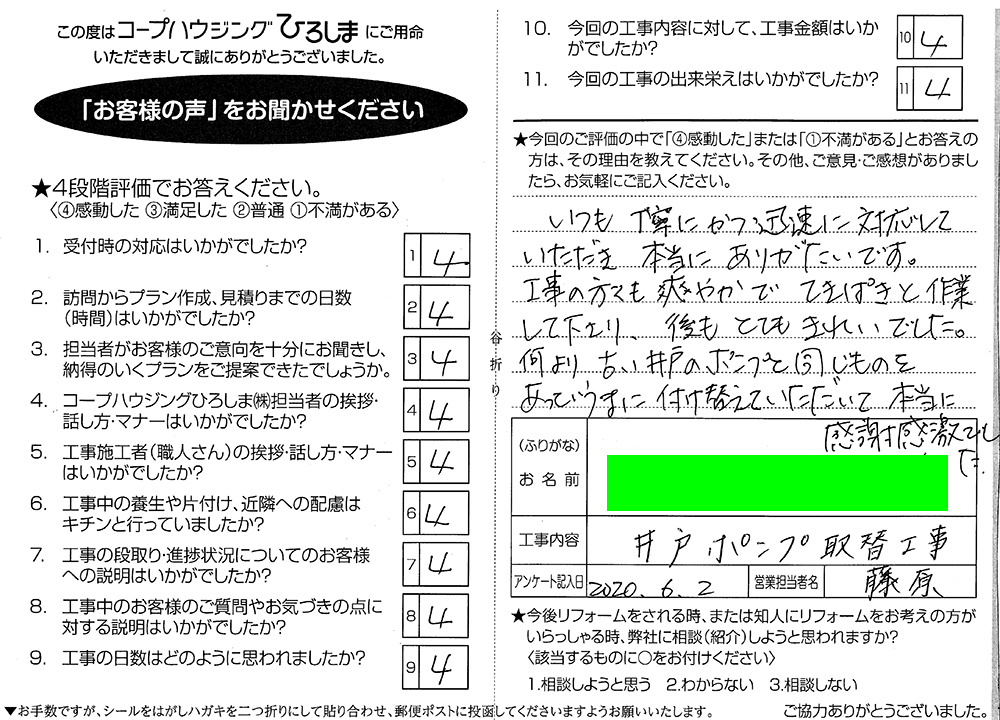 この度はコープハウジングひろしまにご用命
いただきまして誠にありがとうございました。
「お客様の声」をお聞かせください
★4段階評価でお答えください。
〈④感動した ③満足した ②普通 ①不満がある〉
1. 受付時の対応はいかがでしたか? 1 4
2. 訪問からプラン作成、見積りまでの日数
(時間)はいかがでしたか? 2 4
3. 担当者がお客様のご意向を十分にお聞きし、
納得のいくプランをご提案できたでしょうか。 3 4
4. コープハウジングひろしま㈱担当者の挨拶・
話し方・マナーはいかがでしたか? 4 4
5. 工事施工者(職人さん)の挨拶・話し方・マナー
はいかがでしたか? 5 4
6. 工事中の養生や片付け、近隣への配慮は
キチンと行っていましたか? 6 4
7. 工事の段取り・進捗状況についてのお客様
への説明はいかがでしたか? 7 4
8. 工事中のお客様のご質問やお気づきの点に
対する説明はいかがでしたか? 8 4
9. 工事の日数はどのように思われましたか? 9 4
谷折り
10. 今回の工事内容に対して、工事金額はいか
がでしたか? 10 4
11. 今回の工事の出来栄えはいかがでしたか? 11 4
★今回のご評価の中で「④感動した」または「①不満がある」とお答えの
方は、その理由を教えてください。その他、ご意見・ご感想がありまし
たら、お気軽にご記入ください。
いつも丁寧にかつ迅速に対応して
いただき 本当に ありがたいです。
工事の方々も爽やかで てきぱきと作業
して下さり、後も とても きれいでした。
何より 古い井戸のポンプと同じものを
あっという間に付け替えていただいて 本当に
感謝感激でし
た.
(ふりがな)
お名前
工事内容 井戸ポンプ取替工事
アンケート記入日 2020.6.2 営業担当者名 藤原
★今後リフォームをされる時、または知人にリフォームをお考えの方が
いらっしゃる時、弊社に相談(紹介)しようと思われますか?
〈該当するものに○をお付けください〉
1.相談しようと思う 2.わからない 3.相談しない
▼お手数ですが、シールをはがしハガキを二つ折りにして貼り合わせ、郵便ポストに投函してくださいますようお願いいたします。 ご協力ありがとうございました。